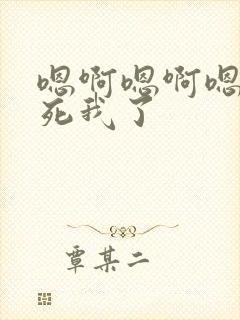 嗯啊嗯啊嗯
死我了
覃某二